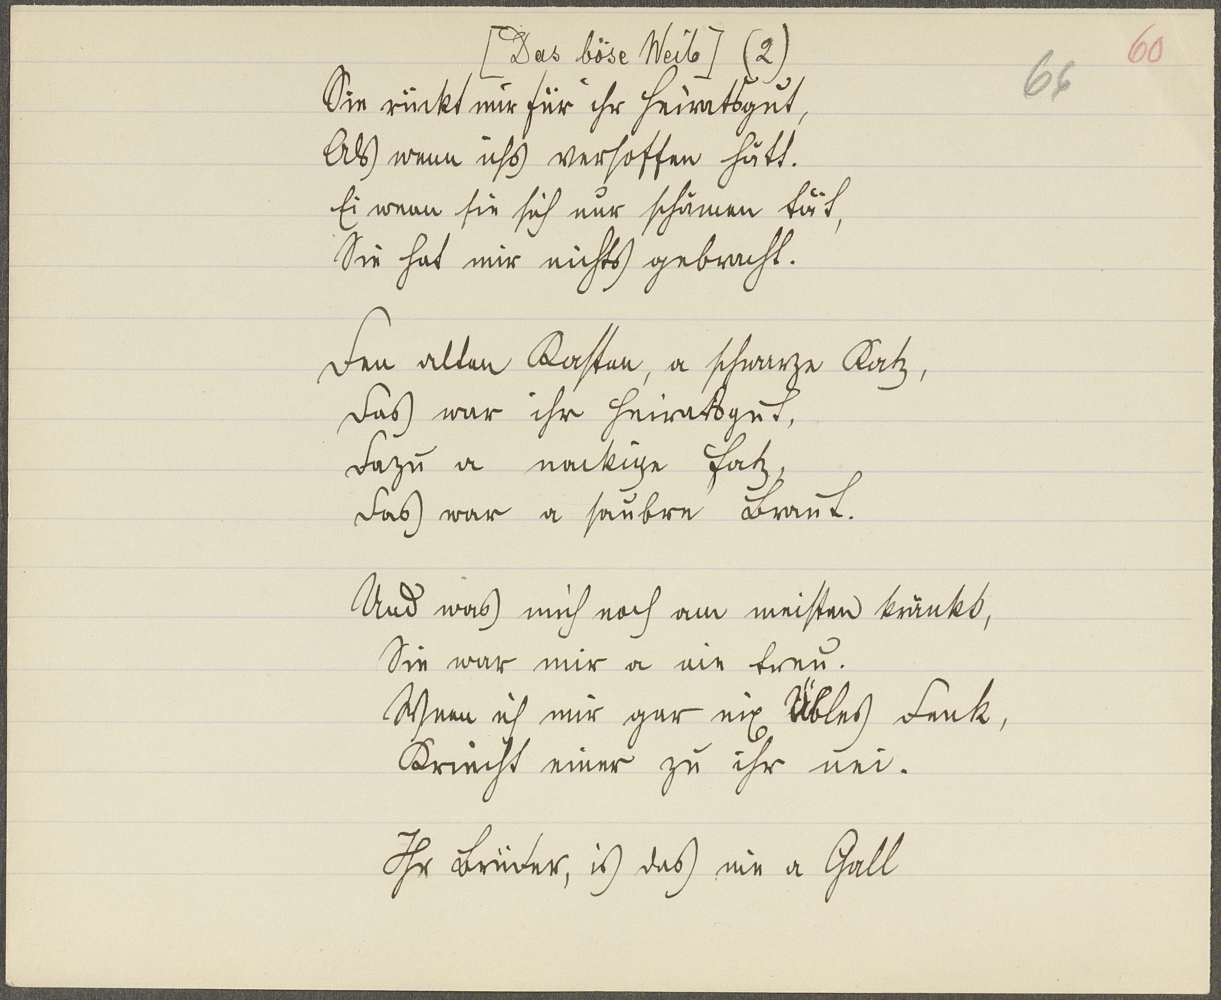 [Das böse Weib] (2)
60
66
Sie rückt mir für ihr Heiratsgut,
Als wenn ichs versoffen hätt.
Ei wenn sie sich nur schämen tät,
Sie hat mir nichts gebracht.
Den alten Kasten, a schwarze Katz,
Das war ihr Heiratsgut,
Dazu a nackige Fatz,
Das war a saubre Braut.
Und was mich noch am meisten kränkt,
Sie war mir a nie treu.
Wenn ich mir gar nix Übles denk,
Kriecht einer zu ihr nei.
Ihr Brüder, is das nie a Gall